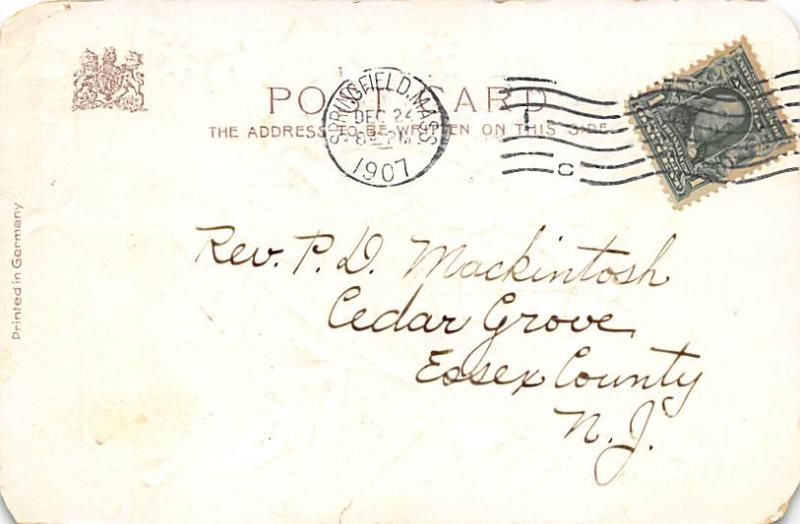 POST CARD
THE ADDRESS TO BE WRITTEN ON THIS SIDE
SPRINGFIELD, MASS
DEC 24
1907
C
Rev. P. D. Mackintosh
Cedar Grove,
Essex County
N. J.
Printed in Germany